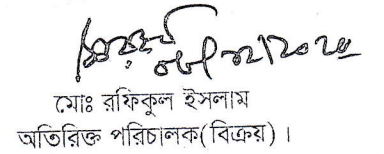 মোঃ রফিকুল ইসলাম
অতিরিক্ত পরিচালক(বিক্রয়) ।